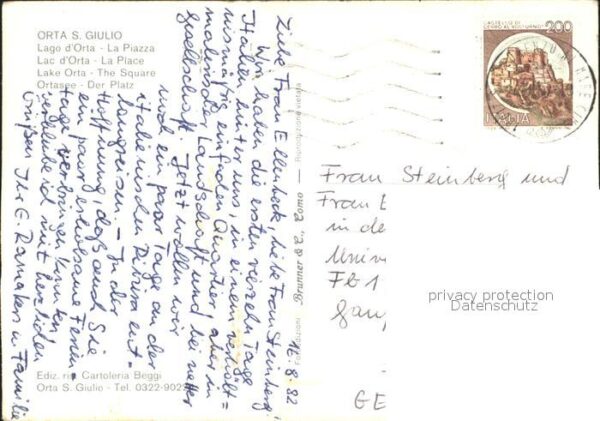 ORTA S. GIULIO
Lago d'Orta - La Piazza
Lac d'Orta - La Place
Lake Orta - The Square
Ortasee - Der Platz
16.8.82
Liebe Frau Ellenbeck, liebe Frau Steinberg,
Wir haben die ersten vierzehn Tage
Italien hinter uns, in einem verhält=
nismäßig einfachen Quartier, aber in
malerischer Landschaft und bei netter
Gesellschaft. Jetzt wollen wir
noch ein paar Tage an der
italienischen Riviera ent=
langreisen. - In der
Hoffnung, daß auch Sie
ein paar erholsame Ferien=
tage verbringen konnten
verbleibe ich mit herzlichen
Grüßen Ihr G. Ramakers u. Familie
Ediz. ris. Cartoleria Beggi
Orta S. Giulio - Tel. 0322-902
Fotoedizioni Brunner & C., Como Riproduzione vietata
CASTELLO DI
CERRO AL VOLTURNO
200
ITALIA
Frau Steinberg und
Frau E
in de
Univ
Fb 1
Gau
GE
privacy protection
Datenschutz